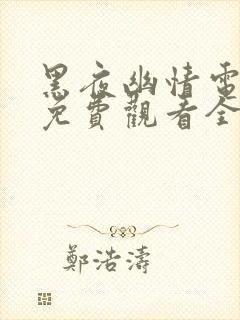 黑夜幽情電
免費觀看全
鄭浩濤